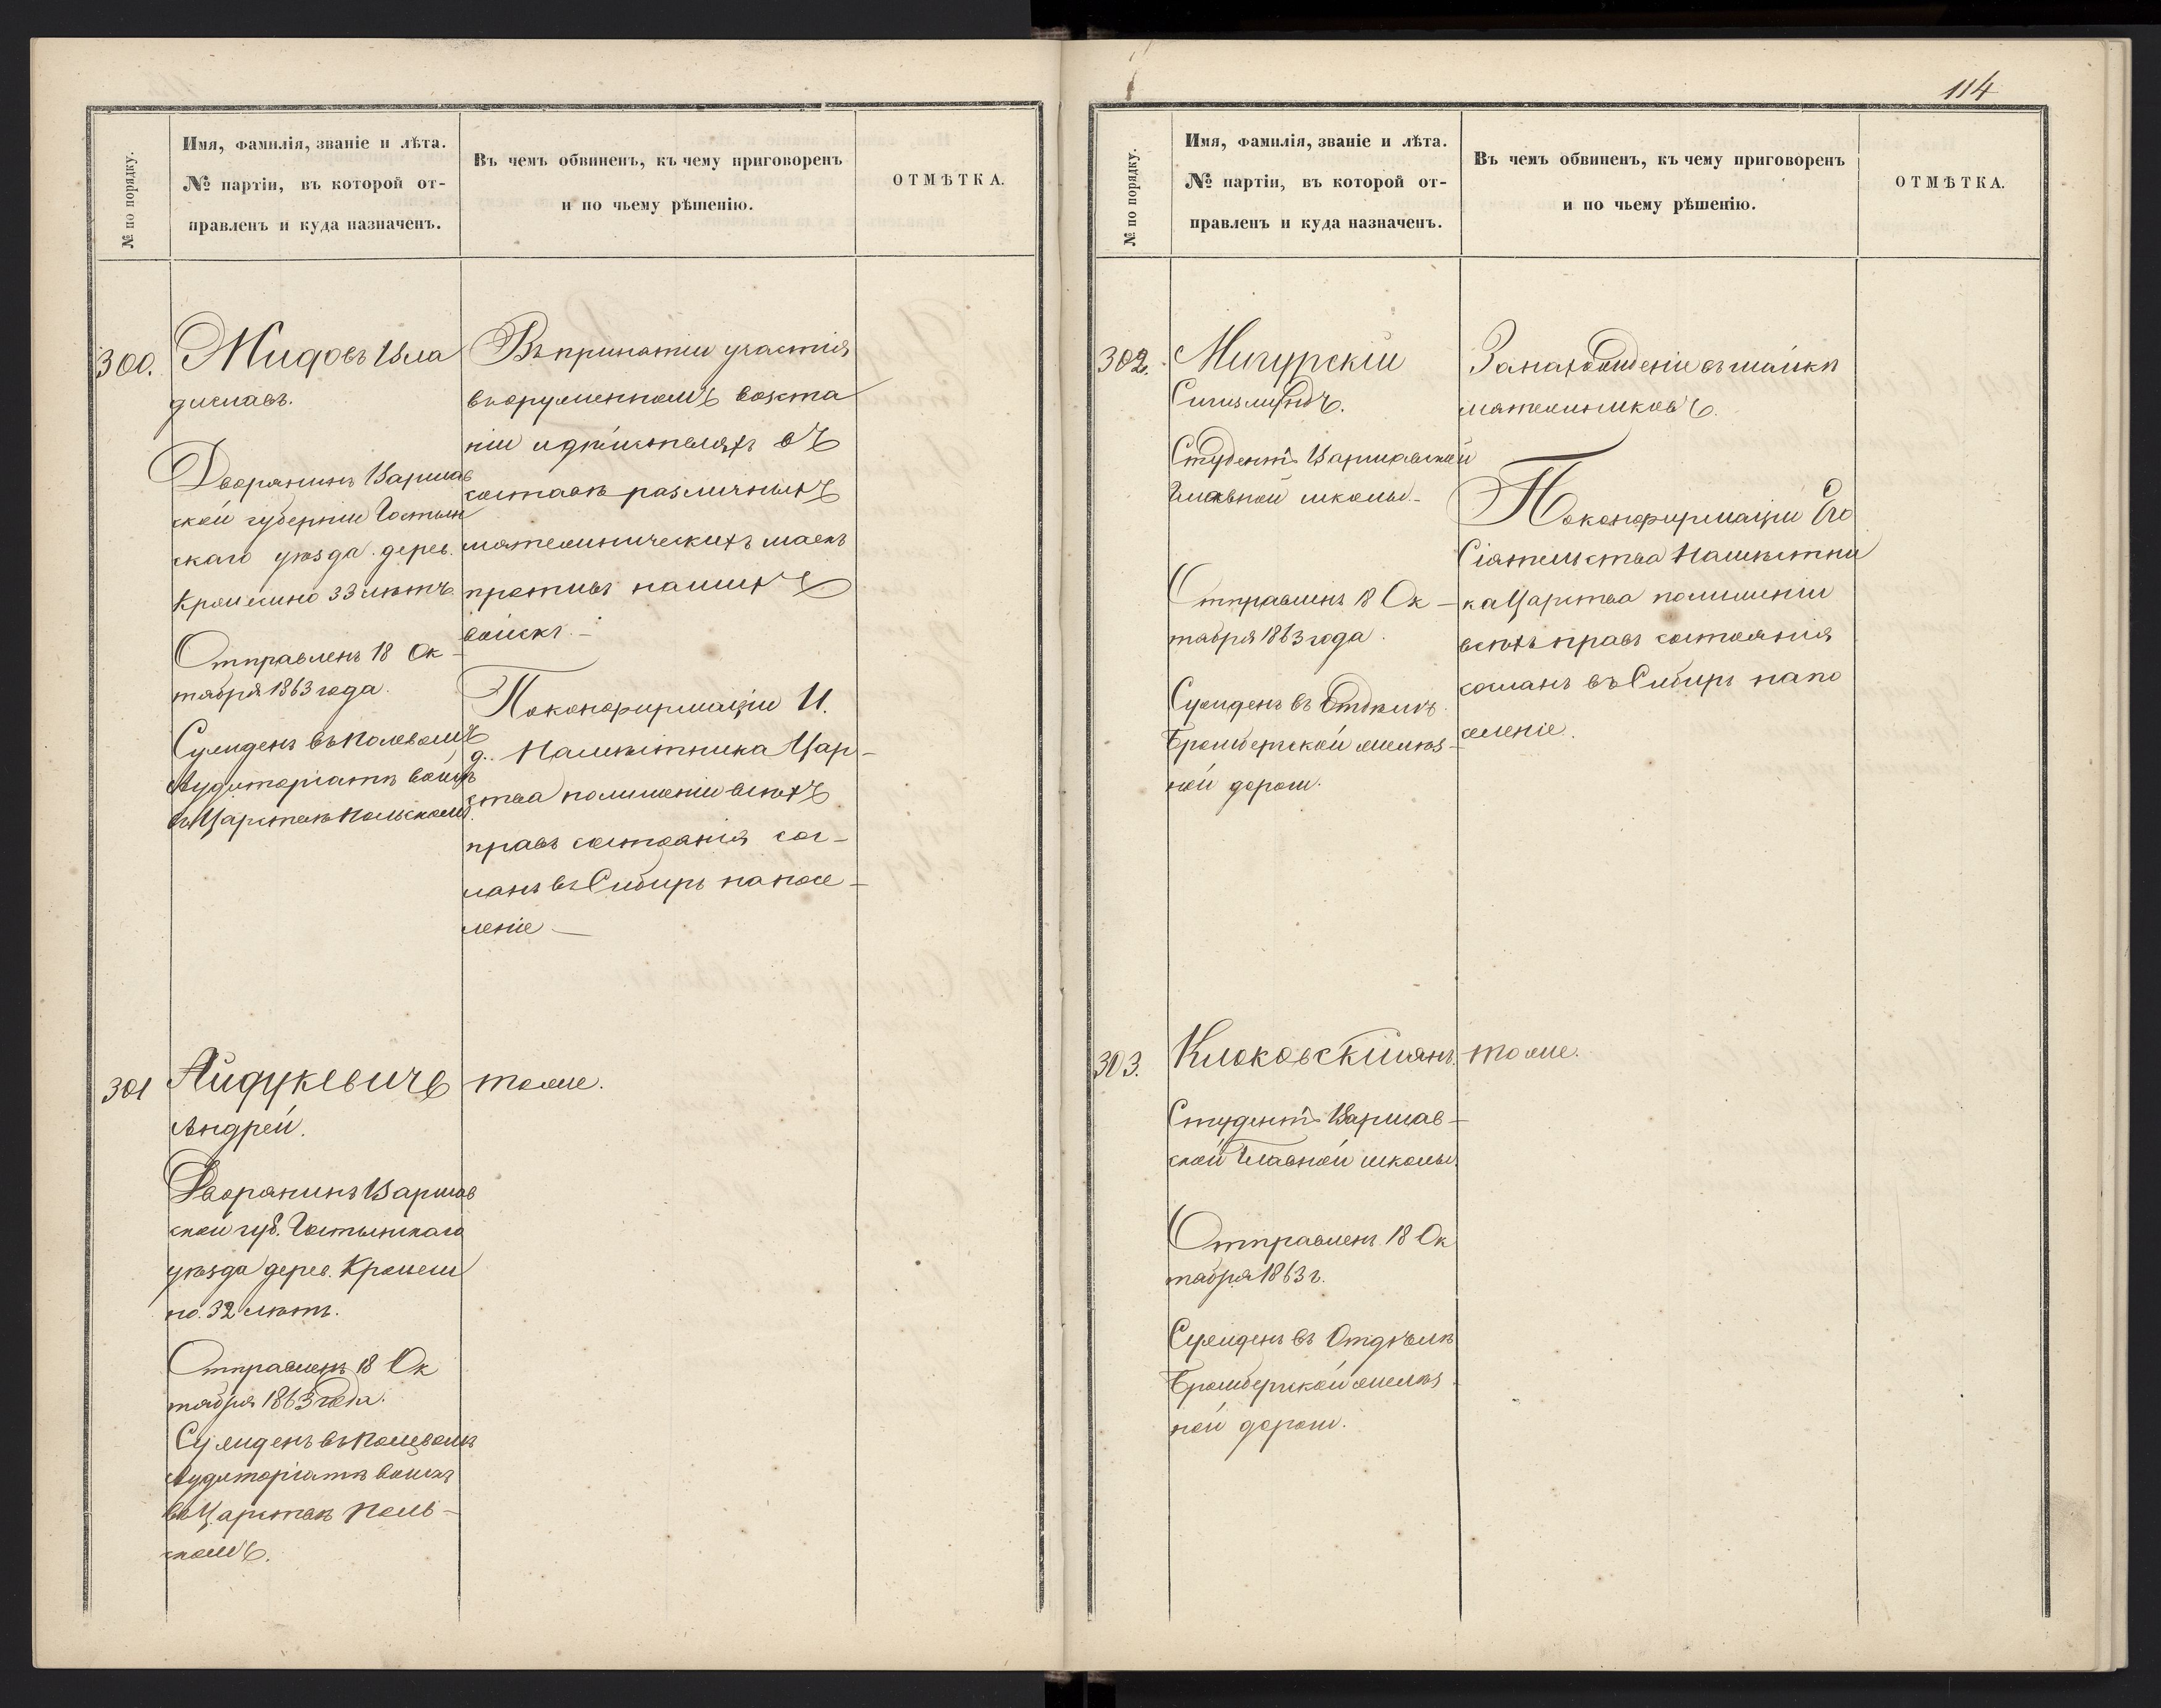 114
№ по порядку.
Имя, фамилія, званіе и лѣта.
№ партіи, въ которой от-
правленъ и куда назначенъ.
Въ чемъ обвиненъ, къ чему приговоренъ
и по чьему рѣшенію.
ОТМѢТКА.
300.
Мидовъ Вла
диславъ.
Дворянинъ Варшав
ской губерніи Гостын
скаго уѣзда дерев.
33 лѣтъ
Отправленъ 18 Ок
тября 1863 года.
Суждень въ Полевомъ
Аудиторіатѣ войскъ
въ Царствѣ Польскомъ.
Въ принятіи участія
вооруженномъ возста
ніи и дѣйствіяхъ въ
составѣ различныхъ
мятежническихъ шаекъ
противъ нашихъ
войскъ.–
По конфирмаціи И.
д. Намѣстника Цар–
ства по лишеніи всѣхъ
правъ состоянія сос–
ланъ въ Сибирь на посе–
леніе –
301
Айдукевичъ
Андрей.
Дворянинъ Варшав
ской губ. Гостынскаго
уѣзда дерев.
но. 32 лѣтъ.
Отправленъ 18 Ок
тября 1863 года.
Суждень въ Полевомъ
Аудиторіатѣ войскъ
въ Царствѣ Поль–
скомъ.
тоже.
№ по порядку.
Имя, фамилія, званіе и лѣта.
№ партіи, въ которой от-
правленъ и куда назначенъ.
Въ чемъ обвиненъ, къ чему приговоренъ
и по чьему рѣшенію.
ОТМѢТКА.
302.
Мигурскій
Сигизмундъ.
Студентъ Варшавской
Главной школы.–
Отправленъ 18 Ок –
тября 1863 года.
Суждень въ Отдѣлѣ
Бромбергской желѣз –
ной дороги.
За нахожденіе въ шайкѣ
мятежниковъ.
По конфирмаціи Его
Сіятельства Намѣстни
ка Царства по лишеніи
всѣхъ правъ состоянія
сосланъ въ Сибирь на по
селеніе.
303.
Клоковскій Янъ.
Студентъ Варшав–
ской Главной школы.
Отправленъ 18 Ок
тября 1863 г.
Суждень въ Отдѣлѣ
Бромбергской желѣз
ной дороги.
тоже.